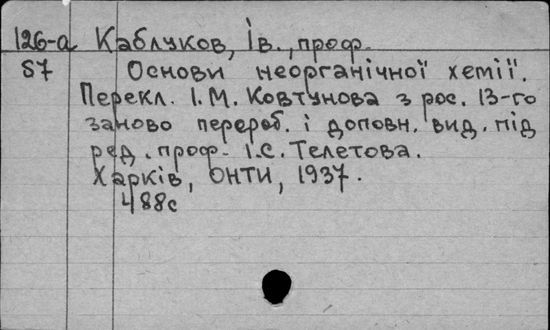 126-а Каблуков, Ів., проф.
57 Основи неорганічної хемії.
Перекл. І.М. Ковтунова з рос. 13-го
заново перероб. і доповн. вид. під
ред. проф. І.С. Телетова.
Харків, ОНТИ, 1937.
488с